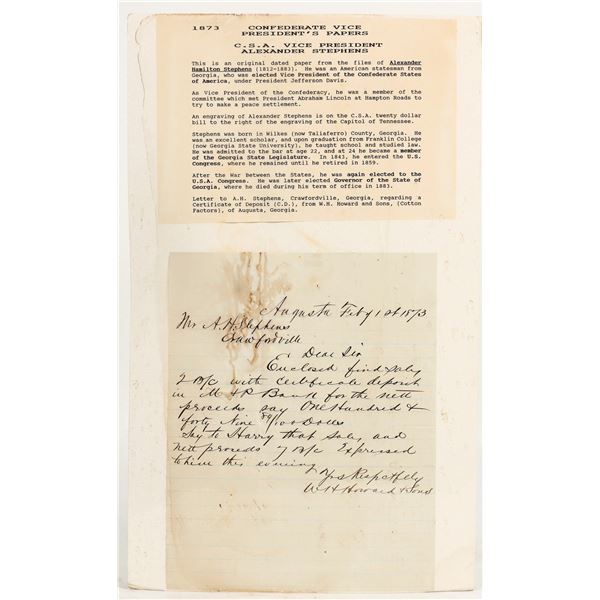 1873 CONFEDERATE VICE
PRESIDENT'S PAPERS
C.S.A. VICE PRESIDENT
ALEXANDER STEPHENS
This is an original dated paper from the files of Alexander
Hamilton Stephens (1812-1883). He was an American statesman from
Georgia, who was elected Vice President of the Confederate States
of America, under President Jefferson Davis.
As Vice President of the Confederacy, he was a member of the
committee which met President Abraham Lincoln at Hampton Roads to
try to make a peace settlement.
An engraving of Alexander Stephens is on the C.S.A. twenty dollar
bill to the right of the engraving of the Capitol of Tennessee.
Stephens was born in Wilkes (now Taliaferro) County, Georgia. He
was an excellent scholar, and upon graduation from Franklin College
(now Georgia State University), he taught school and studied law.
He was admitted to the bar at age 22, and at 24 he became a member
of the Georgia State Legislature. In 1843, he entered the U.S.
Congress, where he remained until he retired in 1859.
After the War Between the States, he was again elected to the
U.S.A. Congress. He was later elected Governor of the State of
Georgia, where he died during his term of office in 1883.
Letter to A.H. Stephens, Crawfordville, Georgia, regarding a
Certificate of Deposit (C.D.), from W.H. Howard and Sons, (Cotton
Factors), of Augusta, Georgia.
Augusta Feby 1st 1873
Mr A. H. Stephens
Crawfordville
Dear Sir
Enclosed find sales
2 B/C with certificate deposit
in M & P Bank for the nett
proceeds say One Hundred &
forty Nine 89/100 Dolls
Say to Harry that sales and
nett proceeds 7 B/C Expressed
to him this evening
Yrs Respctfly
W H Howard & Sons